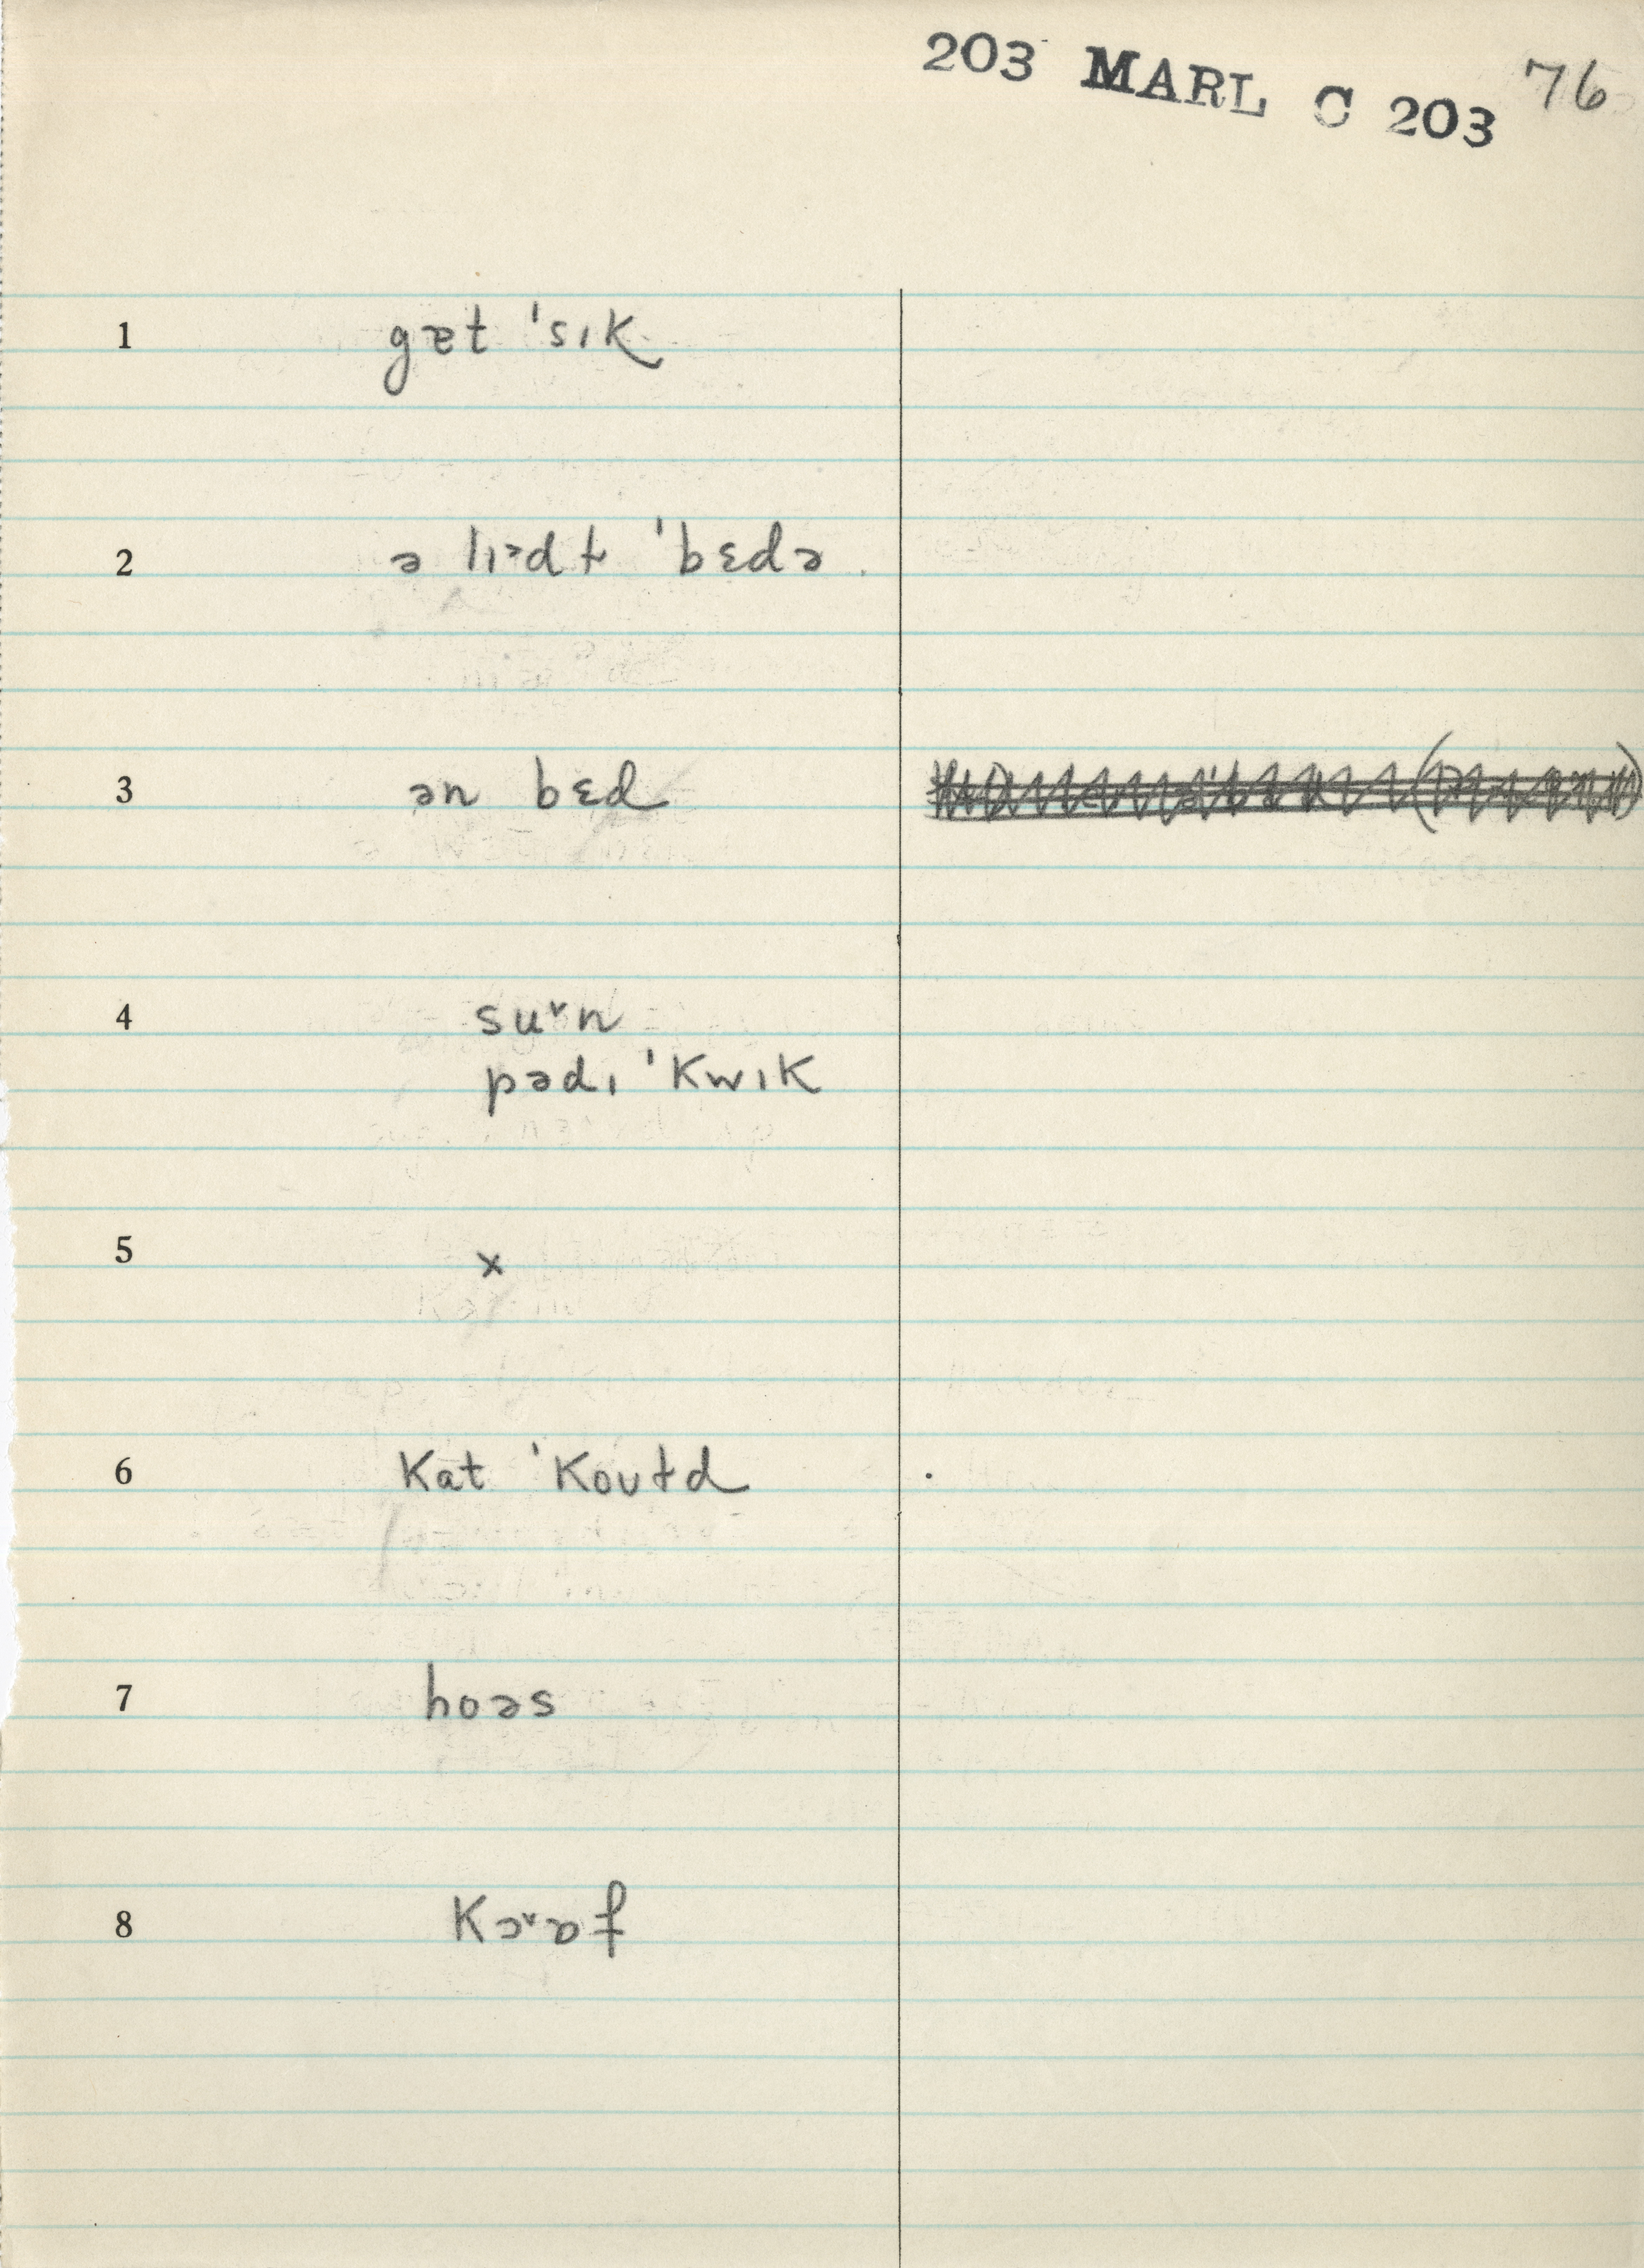 203 MARL C 203 76
1 gæt ˈsɪk
2 ə lɪᵊdɫ ˈbɛdə
3 ən bɛd
4 su˅n
pədɪ ˈkwɪk
5 x
6 kat ˈkoʊɫd
7 hoəs
8 kɔ˅ɒf